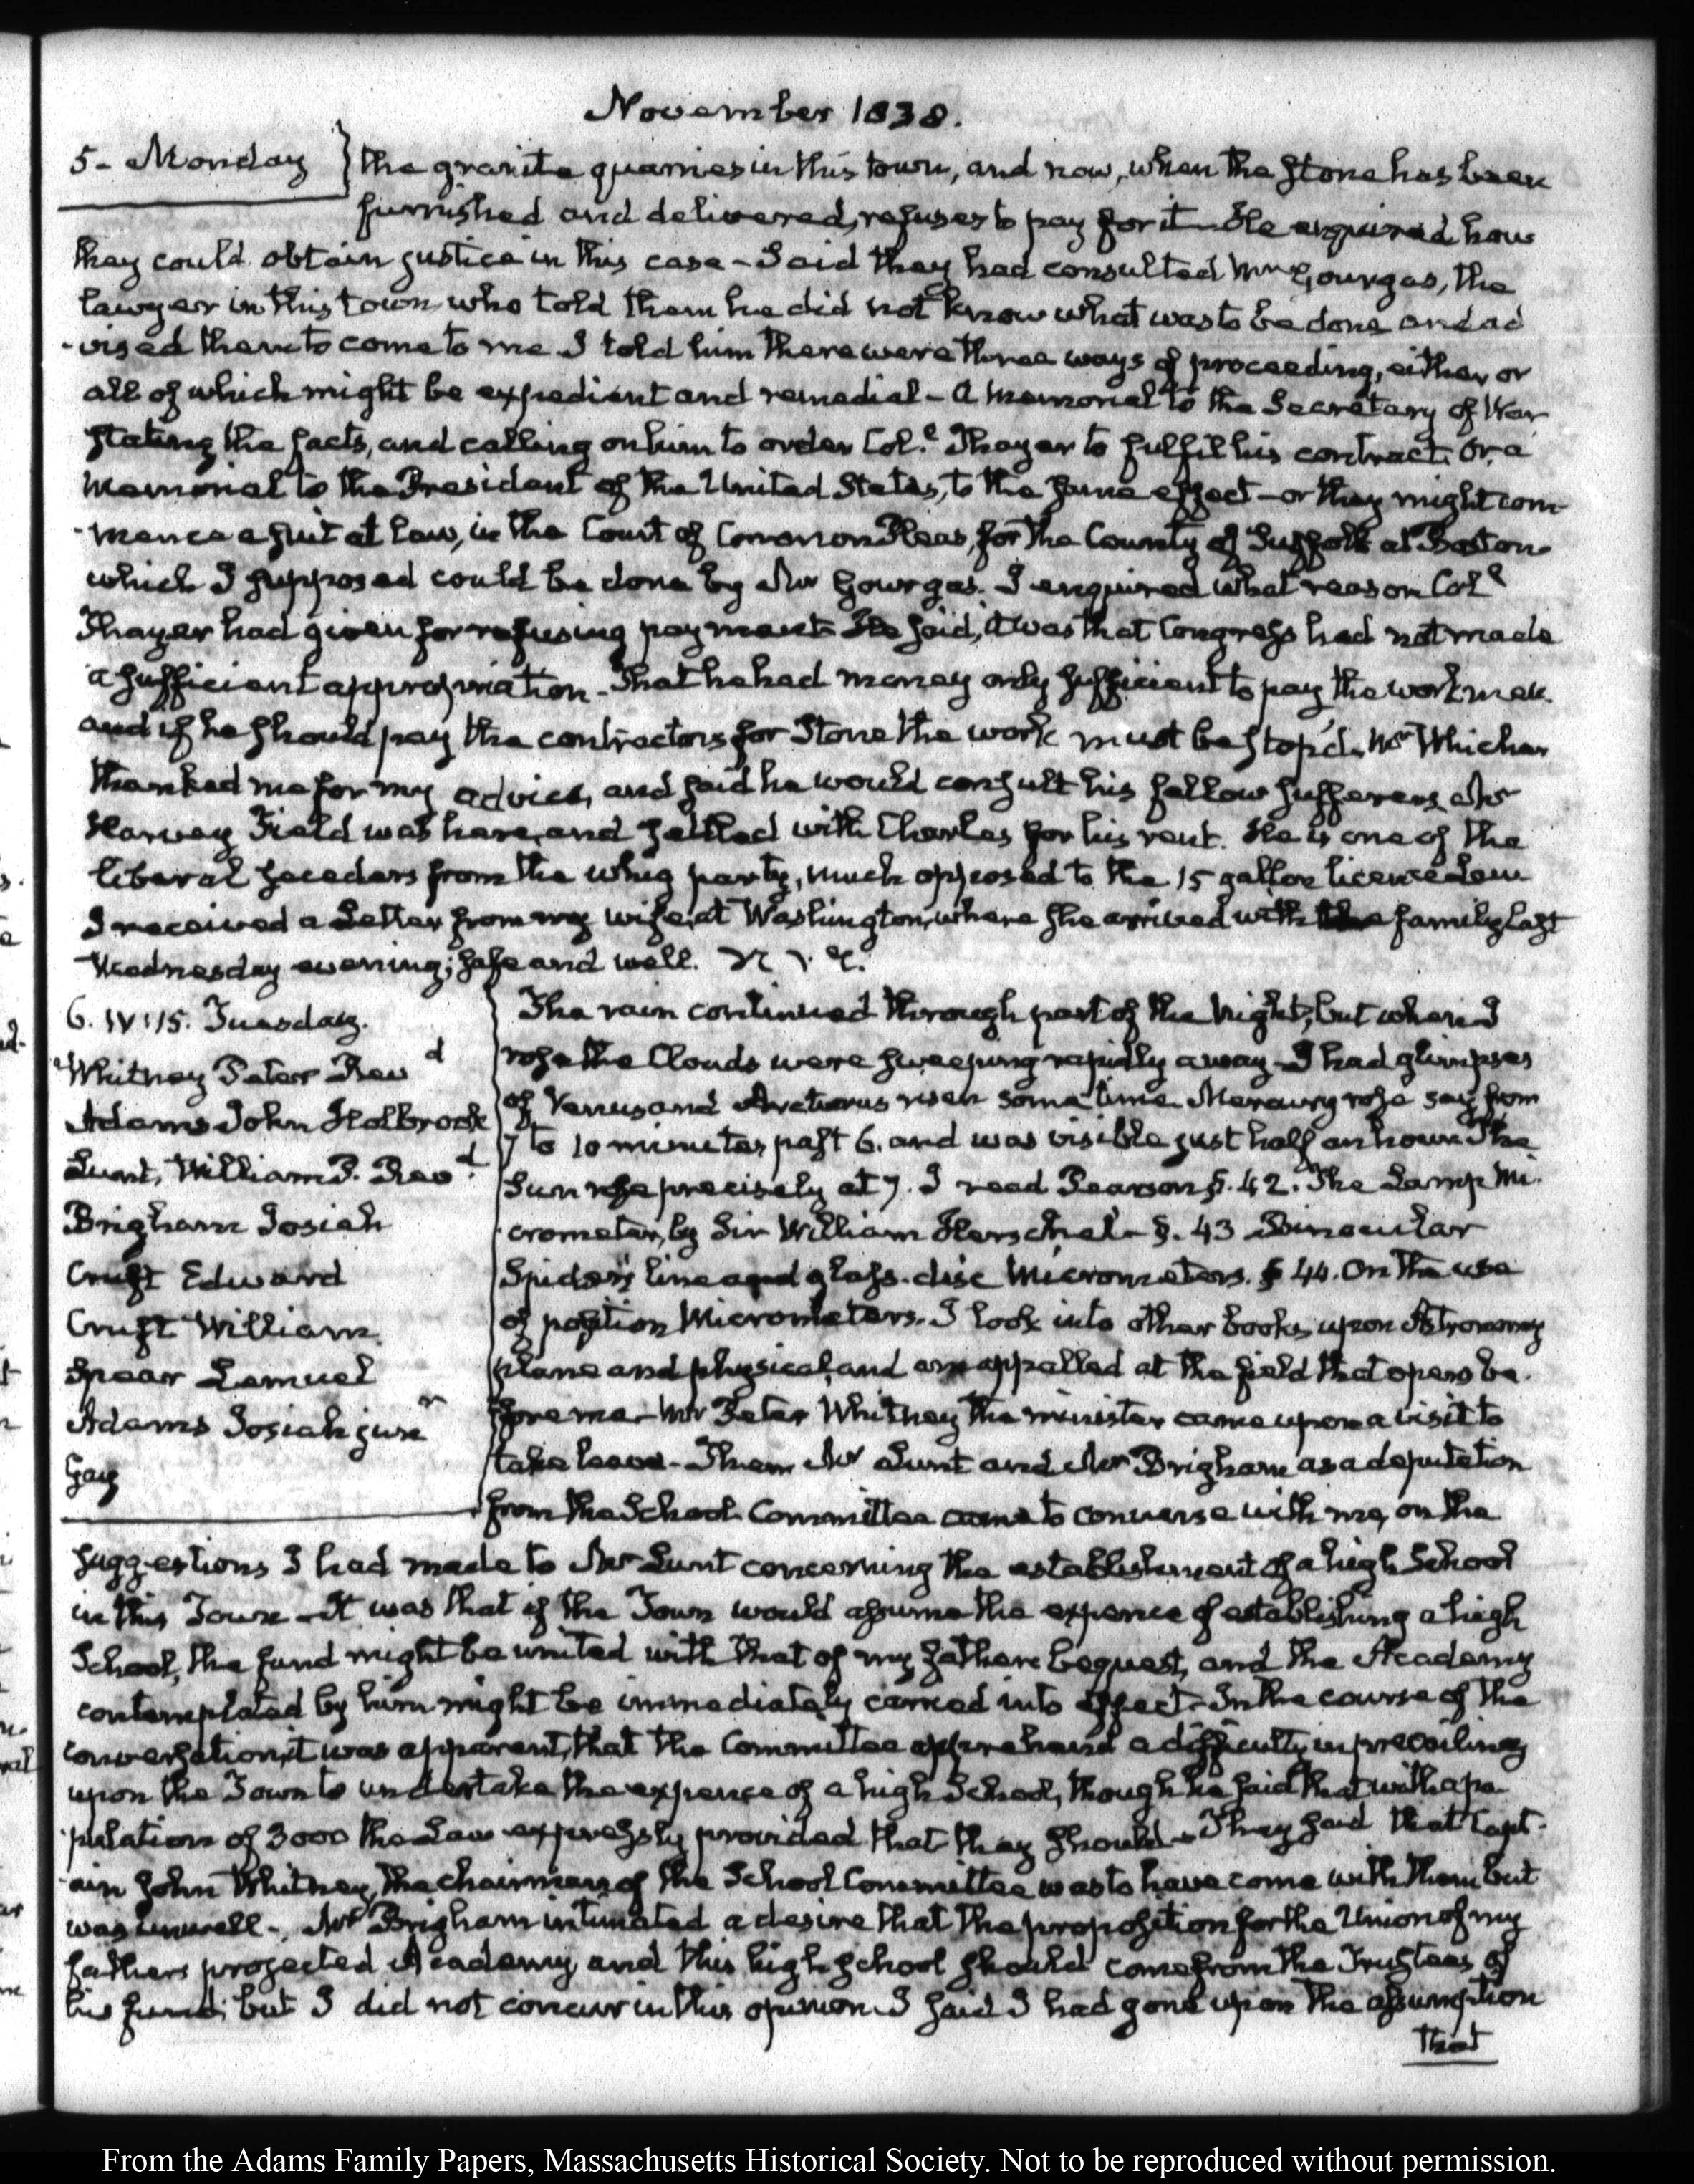 November 1838.
5- Monday } the granite quarries in this town, and now, when the stone has been
furnished and delivered, refuses to pay for it - He enquired how
they could obtain justice in this case - Said they had consulted Mr Gourgas, the
lawyer in this town who told them he did not know what was to be done and ad
-vised them to come to me I told him there were three ways of proceeding, either or
all of which might be expedient and remedial - A memorial to the Secretary of War
stating the facts, and calling on him to order Col.l Thayer to fulfil his contract. Or a
memorial to the President of the United States, to the same effect - or they might com-
-mence a suit at law, in the Court of Common Pleas, for the County of Suffolk at Boston
which I supposed could be done by Mr Gourgas. I enquired what reason Coll
Thayer had given for refusing payment He said, it was that Congress had not made
a sufficient appropriation - That he had money only sufficient to pay the workmen.
and if he should pay the contractors for Stone the work must be stop'd. Mr Whicher
thanked me for my advice, and said he would consult his fellow sufferers Mr
Harvey Field was here, and settled with Charles for his rent. He is one of the
liberal seceders from the whig party, much opposed to the 15 gallon license Law
I received a Letter from my wife, at Washington, where she arrived with the family last
Wednesday evening; safe and well.
6. IV:15. Tuesday.
Whitney Peter Revd
Adams John Holbrook
Lunt, William P. Revd.
Brigham Josiah
Cruft Edward
Cruft William
Spear Lemuel
Adams Josiah junr
Gay
The rain continued through part of the night, but when I
rose the Clouds were sweeping rapidly away - I had glimpses
of Venus and Arcturus risen some time. Mercury rose say from
7 to 10 minutes past 6. and was visible just half an hour The
Sun rose precisely at 7. I read Pearson §. 42. The Lamp Mi-
-crometer, by Sir William Herschel - §. 43 Binocular
Spider's line and glass-disc Micrometers. § 44. On the use
of position Micrometers. I look into other books upon Astronomy
plane and physical, and am appalled at the field that opens be-
fore me - Mr Peter Whitney the minister came upon a visit to
take leave - Then Mr Lunt and Mr Brigham as a deputation
from the School Committee came to converse with me, on the
suggestions I had made to Mr Lunt concerning the establishment of a high School
in this Town - It was that if the Town would assume the expence of establishing a high
School, the fund might be united with that of my father's bequest, and the Academy
contemplated by him might be immediately carried into effect - In the course of the
conversation, it was apparent, that the Committee apprehend a difficulty in prevailing
upon the Town to undertake the expence of a high School, though he said that with a po-
-pulation of 3000 the Law expressly provided that they should - They said that Capt-
-ain John Whitney, the chairman of the School Committee was to have come with them but
was unwell -. Mr Brigham intimated a desire that the proposition for the Union of my
fathers projected Academy and this high school should come from the Trustees of
his fund; but I did not concur in this opinion I said I had gone upon the assumption
that
From the Adams Family Papers, Massachusetts Historical Society. Not to be reproduced without permission.